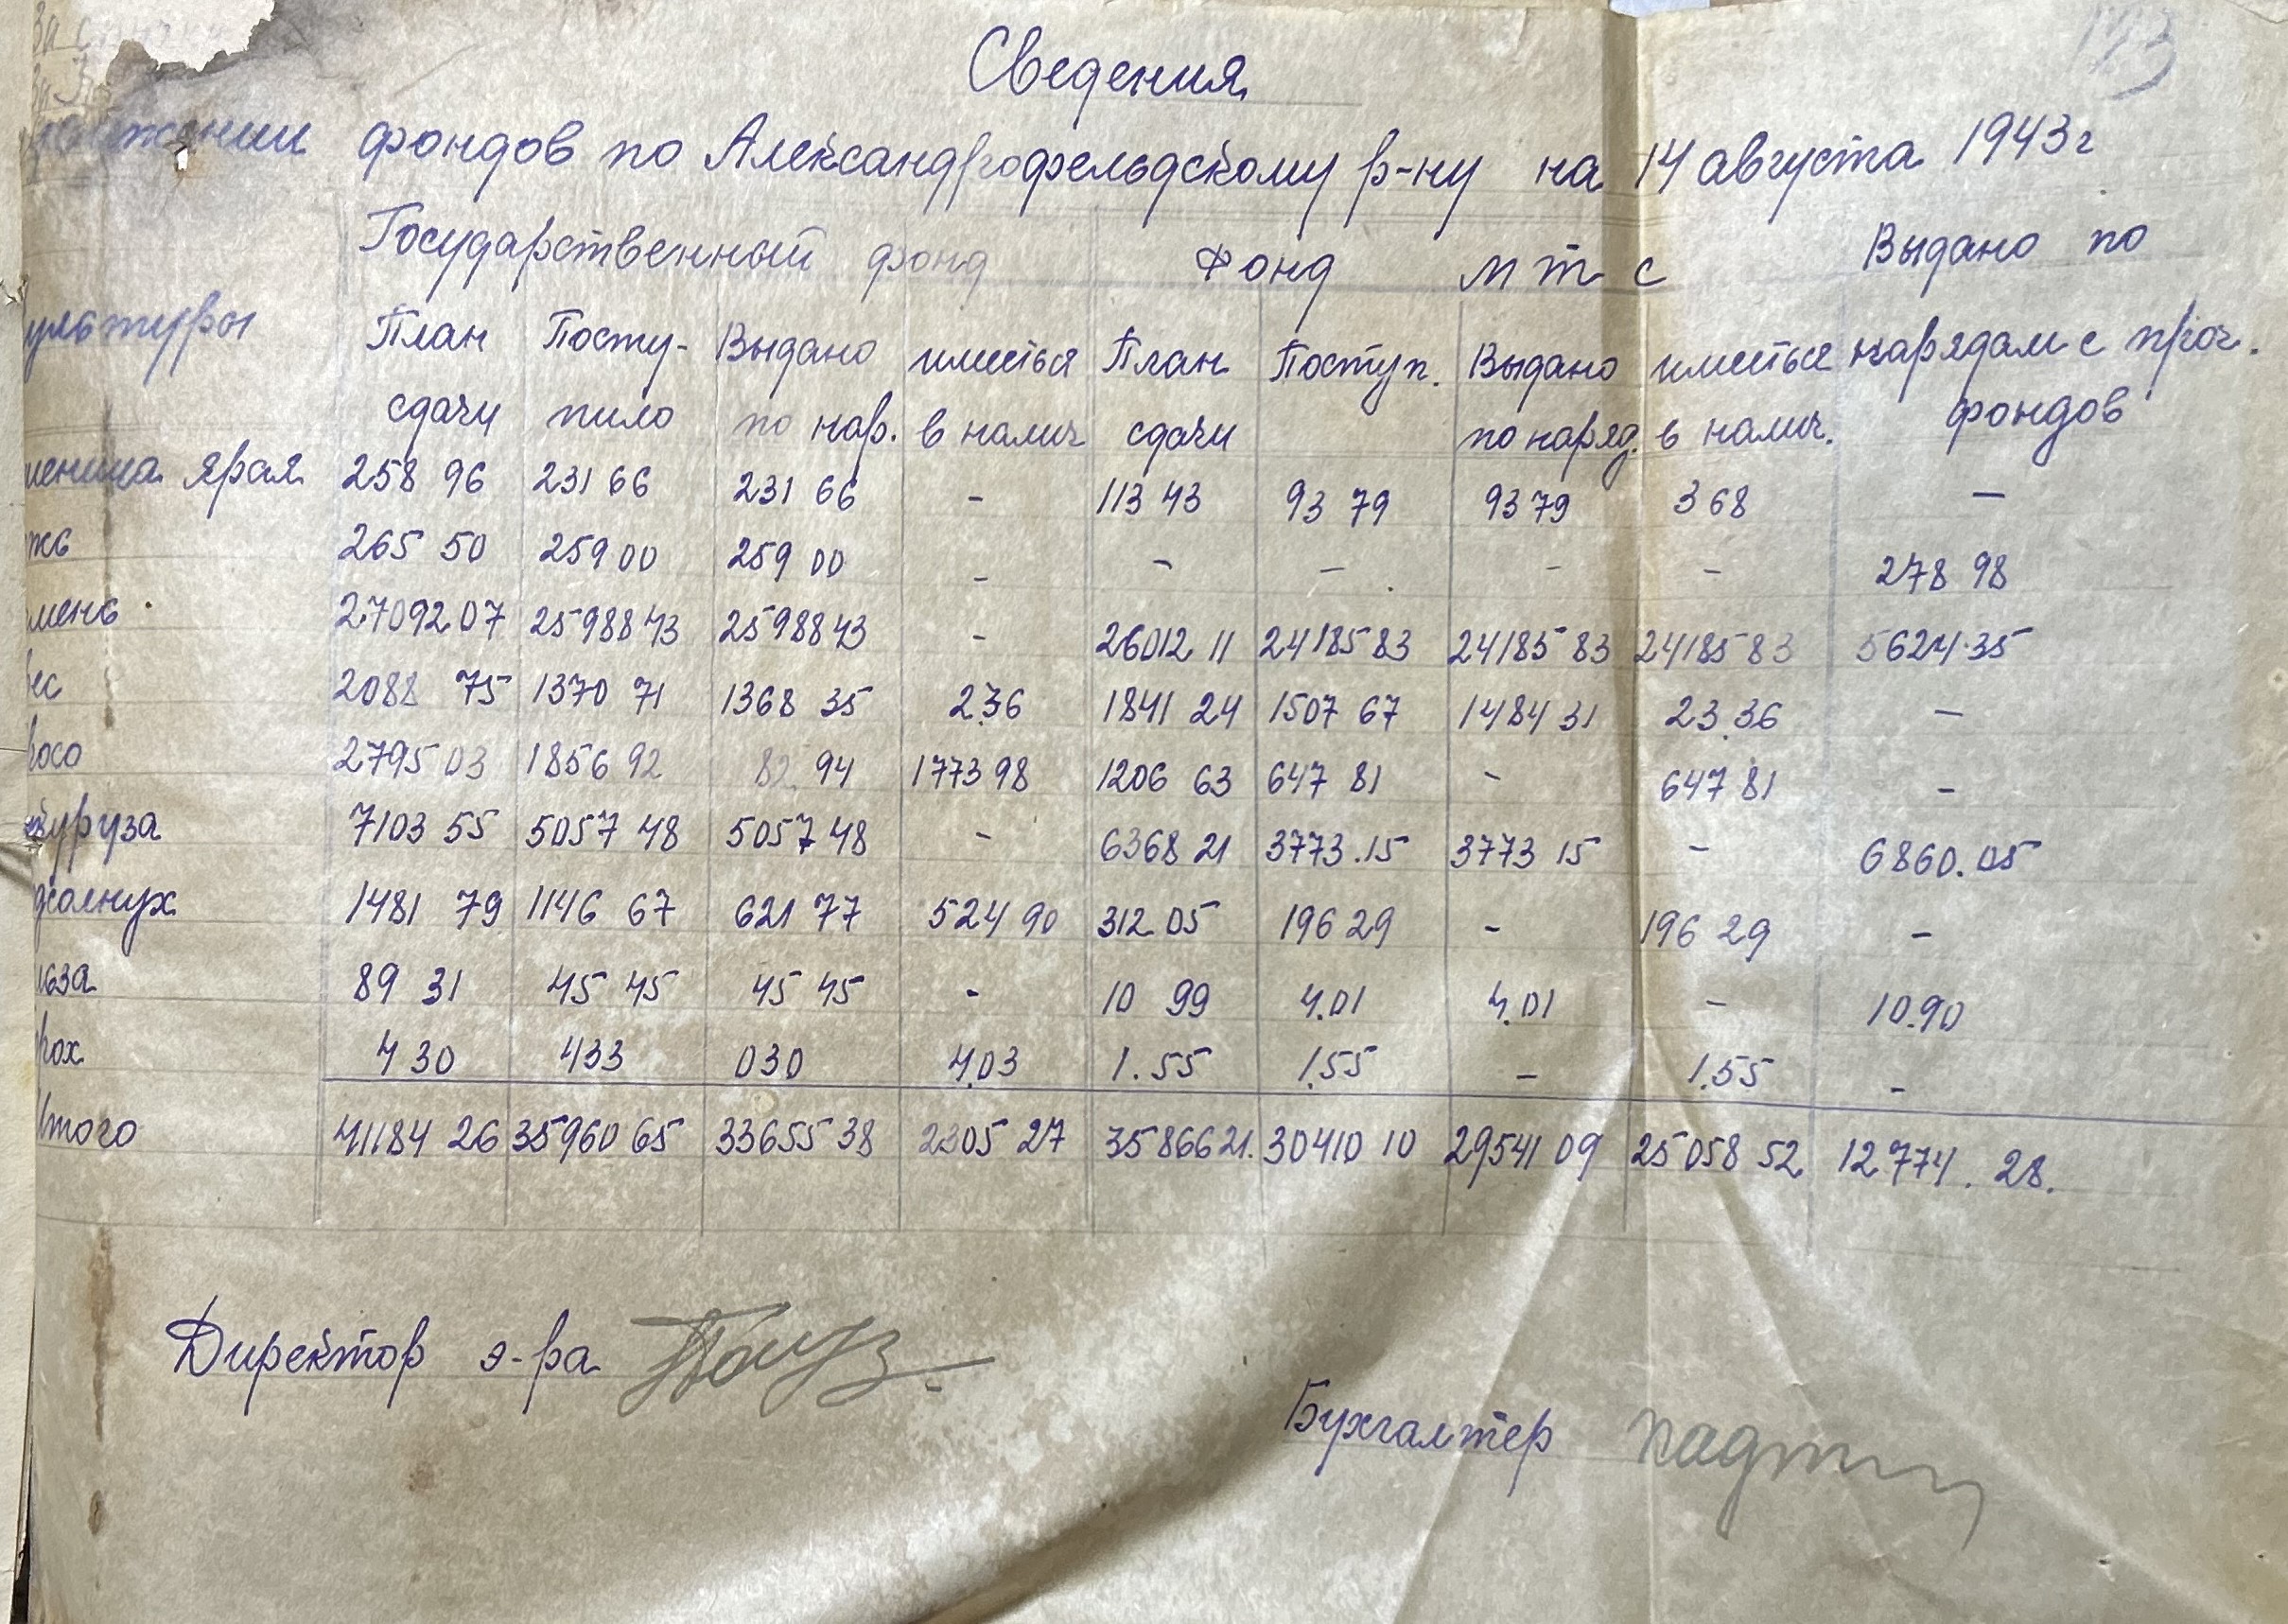 Сведения
фондов по Александрофельдскому р-ну на 14 августа 1943 г
Государственный фонд Фонд М Т С Выдано по
ультуры План Посту- Выдано иметься План Поступ. Выдано иметься нарядам с проч.
сдачи пило по нар. в налич сдачи по наряд. в налич. фондов
шеница ярая 258 96 231 66 231 66 - 113 43 93 79 93 79 3 68 -
жь 265 50 259 00 259 00 - - - - - 278 98
мень 27092 07 25988 43 25988 43 - 26012 11 24185 83 24185 83 24185 83 5624.35
ес 2088 75 1370 71 1368 35 2.36 1841 24 1507 67 1484 31 23.36 -
росо 2795 03 1856 92 82 94 1773 98 1206 63 647 81 - 647 81 -
куруза 7103 55 5057 48 5057 48 - 6368 21 3773.15 3773 15 - 6860.05
дсолнух 1481 79 1146 67 621 77 524 90 312 05 196 29 - 196 29 -
89 31 45 45 45 45 - 10 99 4.01 4.01 - 10.90
рох 4 30 4 33 0 30 4.03 1.55 1.55 - 1.55 -
Итого 41184 26 35960 65 33655 38 2305 27 35866 21. 30410 10 29541 09 25058 52 12774. 28.
Директор э-ра
Бухгалтер